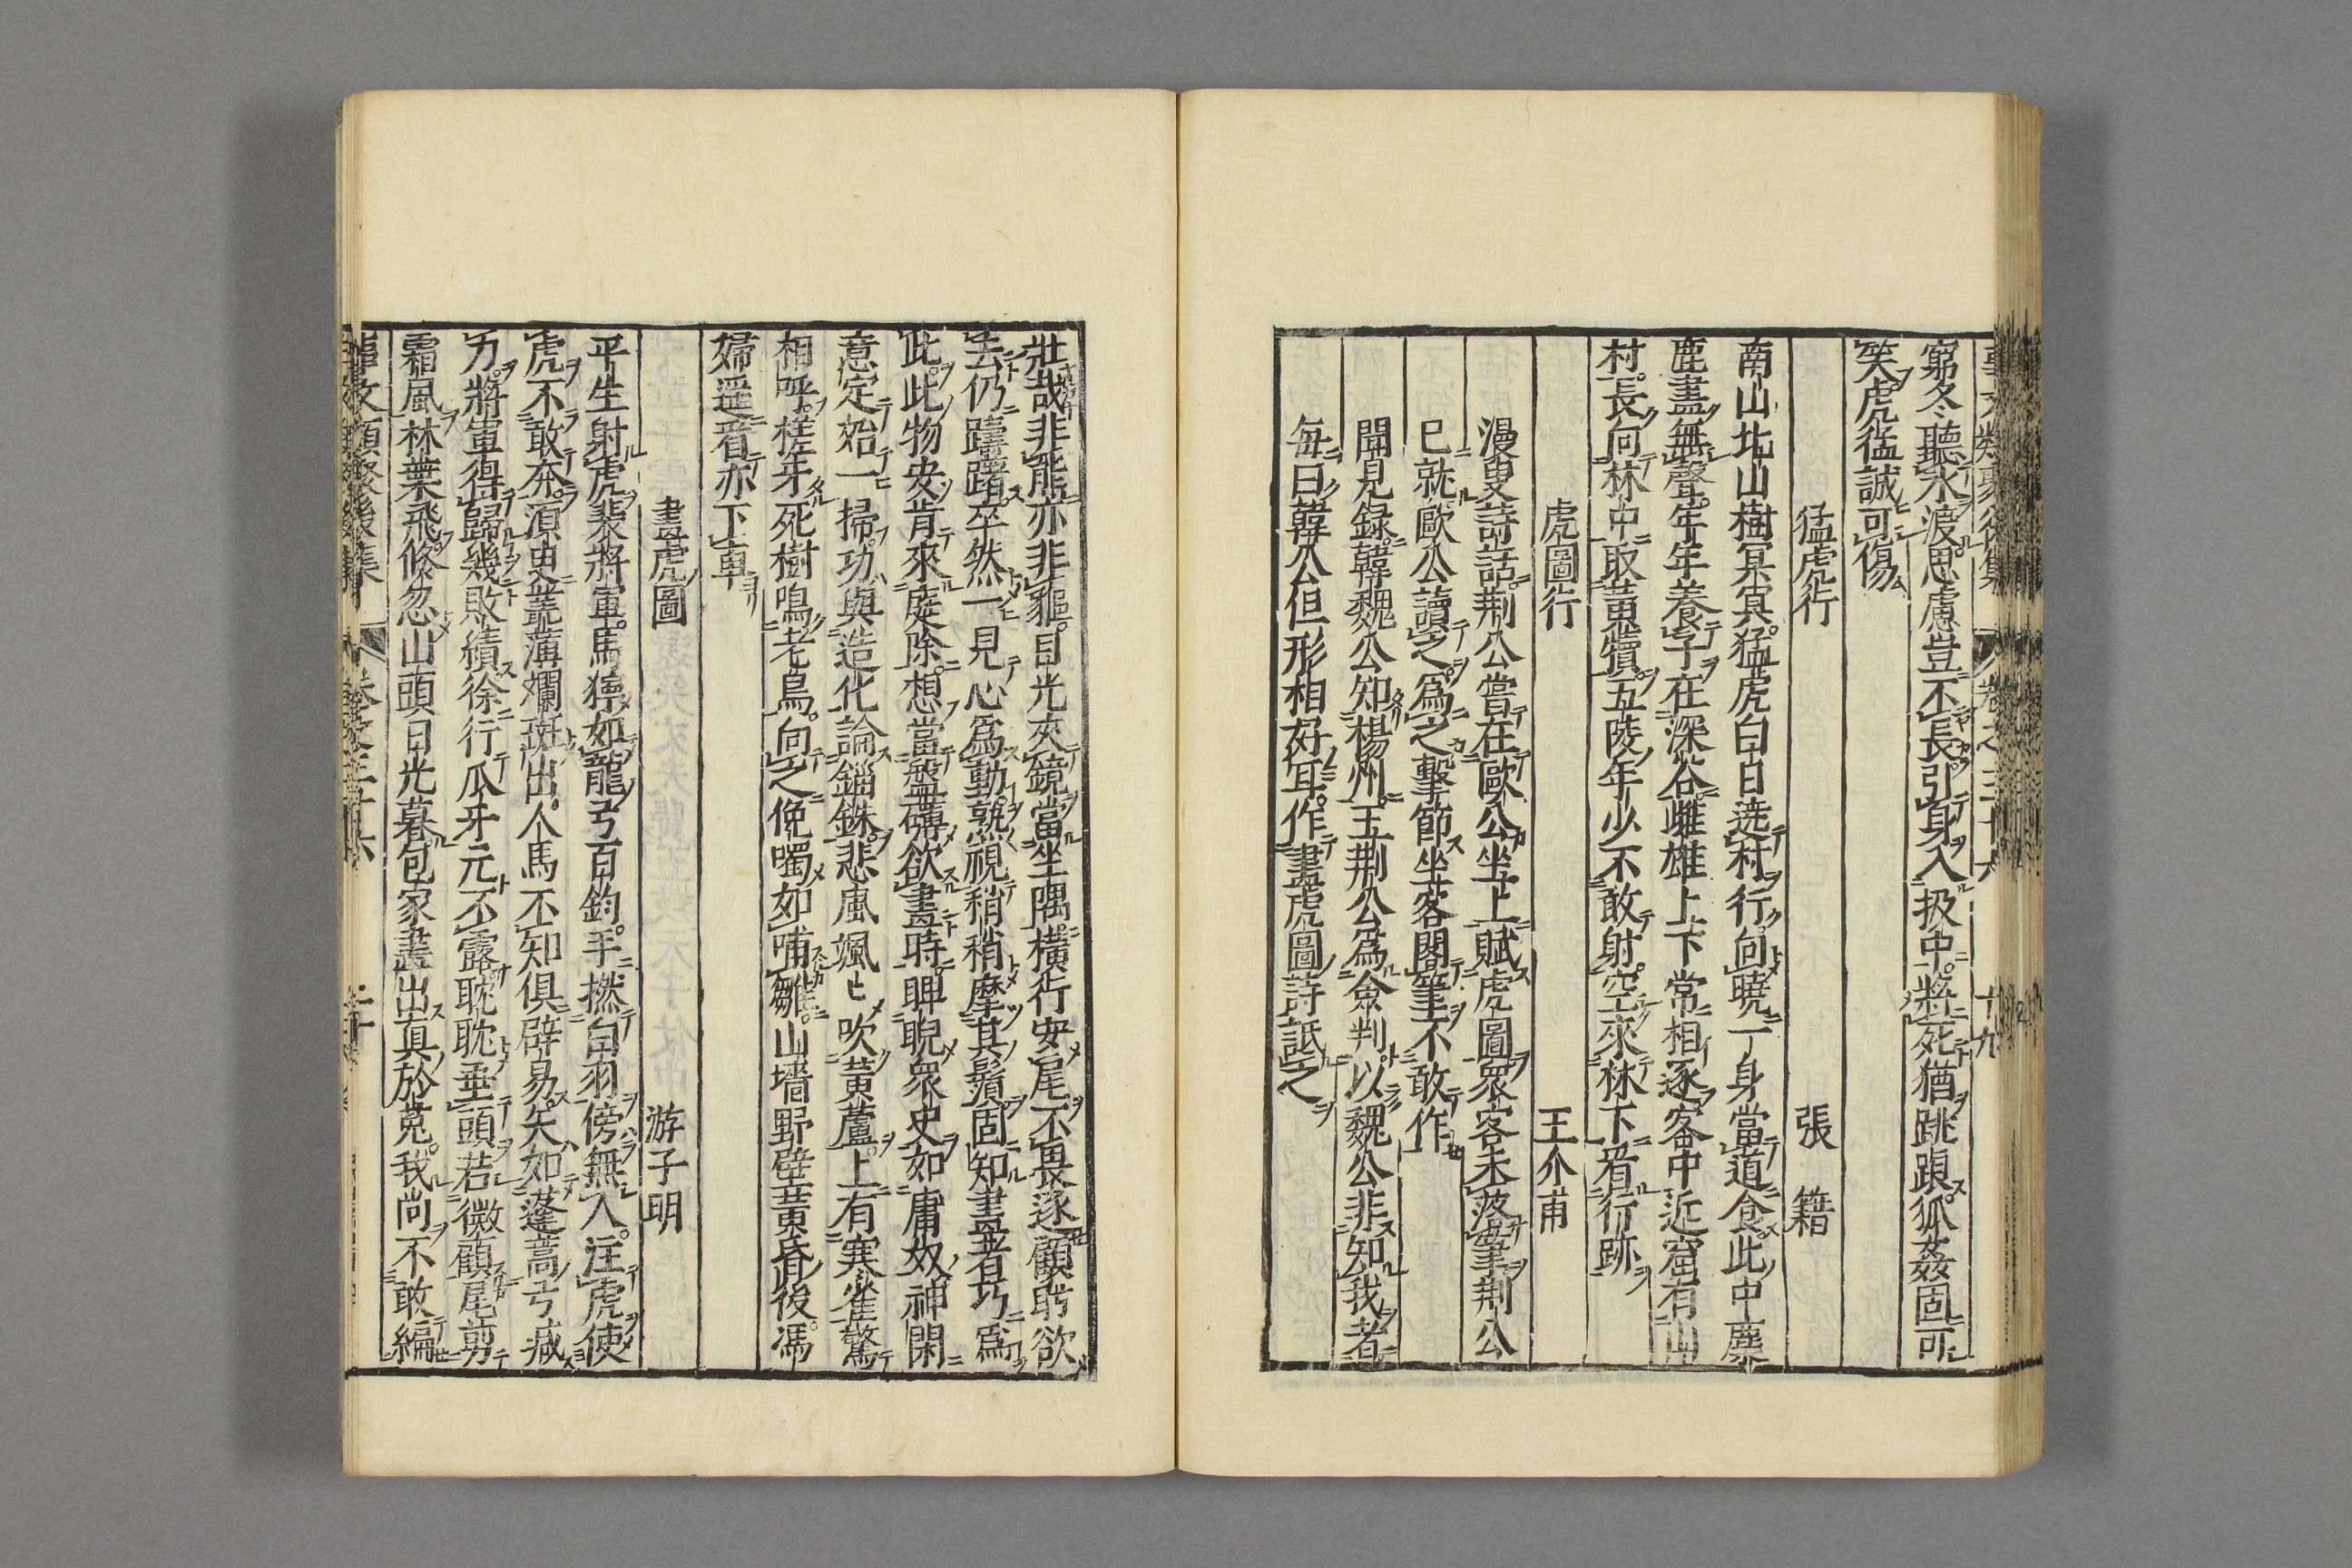 窮冬聽水渡思慮豈不長引身入扱中將死猶跳踉狐姦固可
笑虎猛誠可傷
猛虎行 張籍
南山北山樹冥冥猛虎白日遶村行向曉一身當道食此中麋
鹿盡無聲年年養子在深谷雌雄上下常相逐谷中近窟有山
村長向林中取黃犢五陵年少不敢射空來林下看行跡
虎圖行 王介甫
漫叟詩話荆公嘗在歐公坐上賦虎圖眾客未落筆荆公
已就歐公讀之爲之擊節坐客閣筆不敢作
聞見錄韓魏公知楊州王荆公爲僉判以魏公非知我者
每曰韓公但形相好耳作畫虎圖詩詆之
壯哉非熊亦非貙目光夾鏡當坐隅橫行妥尾不畏逐顧盻欲
去仍躊躇卒然一見心爲動熟視稍稍摩其鬚固知畫者巧爲
此此物安肯來庭除想當盤礴欲畫時睥睨眾史如庸奴神閑
意定始一掃功與造化論錙銖悲風颯ヒ吹黃蘆上有寒雀驚
相呼槎牙死樹鳴老烏向之俛噣如哺雛山墻野壁黃昏後馮
婦遥看亦下車
畫虎圖 游子明
平生射虎裴將軍馬獰如龍弓百鈞手撚白羽傍無人注虎使
虎不敢奔須臾叢薄斕斑出人馬不知俱辟易矢如蓬蒿弓減
力將軍得歸幾敗績徐行爪牙元不露耽耽垂頭若微顧尾剪
霜風林葉飛倏忽山頭日光暮包家畫出真於菟我尚不敢編
事文類聚後集 卷之三十六 二十